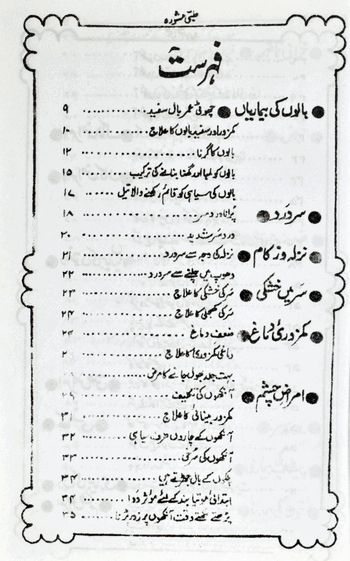 طبی مشورہ
فہرست
● بالوں کی بیماریاں ● چھوٹی عمر بال سفید ........ ۹
کمزور اور سفید بالوں کا علاج .... ۱۰
بالوں کا گرنا ........ ۱۲
بالوں کو لمبا اور گھنا بنانے کی ترکیب ۱۵
بالوں کی سیاہی کو قائم رکھنے والا تیل .... ۱۷
● سر درد ● پرانا درد سر ........ ۱۸
درد سر شدید ........ ۲۰
● نزلہ و زکام ● نزلہ کی وجہ سے سر درد ........ ۲۱
دھوپ میں چلنے سے سر درد ...... ۲۲
● سر میں خشکی ● سر کی خشکی کا علاج ........ ۲۳
سر کی کھجلی کا علاج ........ ۲۴
● کمزوری دماغ ● ضعف دماغ ........ ۲۴
دماغی کمزوری کا علاج ........ ۲
بہت جلد بھول جانے کا مرض ........
● امراض چشم ● آنکھوں کی تکلیف ........
کمزور بینائی کا علاج ........ ۳۱
آنکھوں کے چاروں طرف سیاہی ...... ۳۲
آنکھوں کی سرخی ........ ۳۳
پلکوں کے بال جھڑتے ........ ۳۳
ابتدائی موتیا بند کے لئے مؤثر دوا ۳۴
پڑھتے لکھتے وقت آنکھوں پر زور پڑنا ۳۵